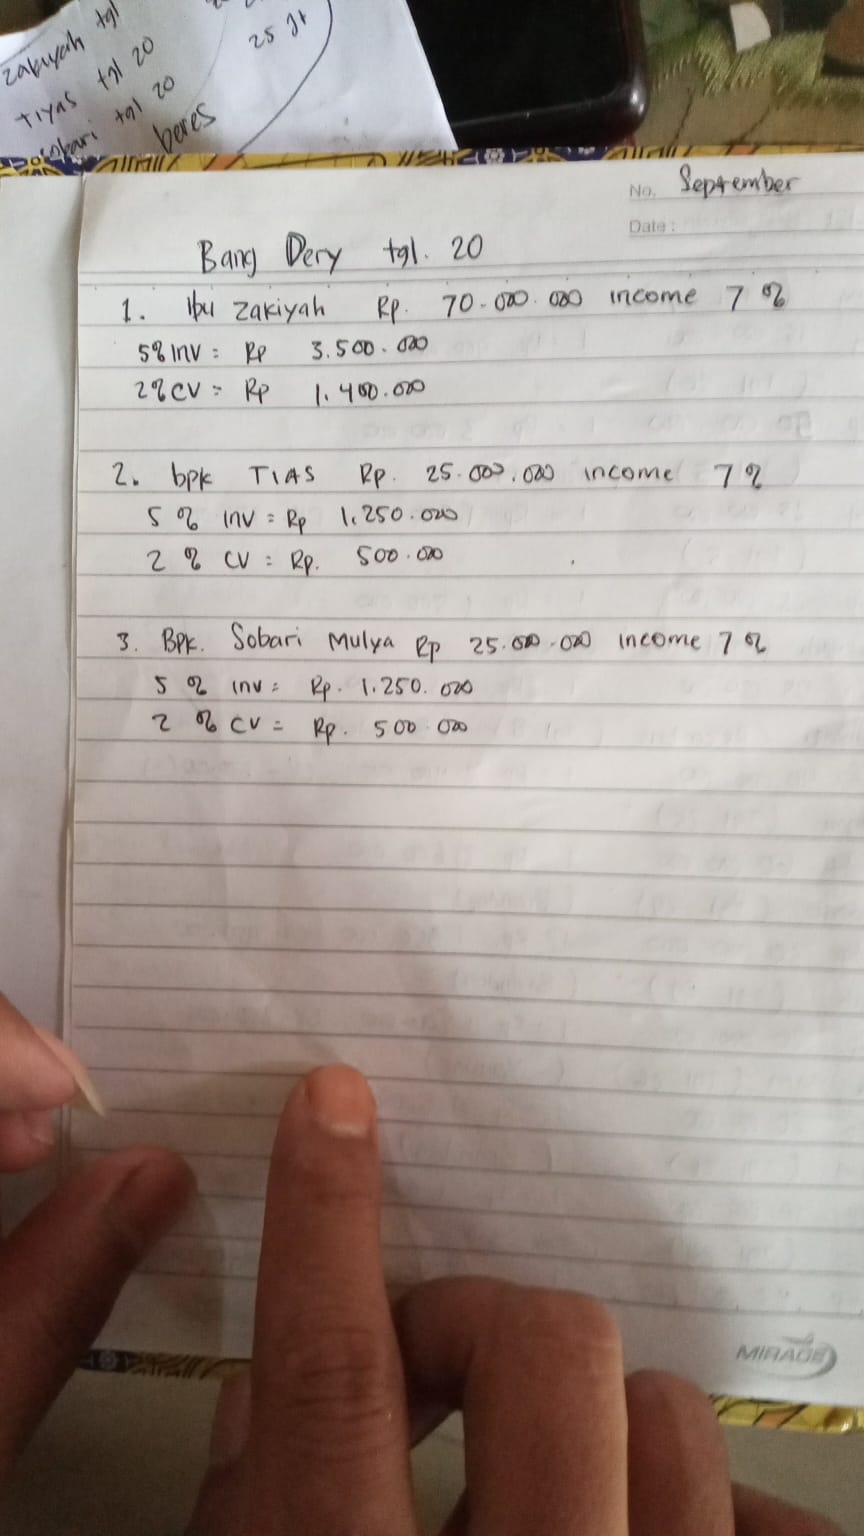 zakiyah tgl
Tiyas tgl 20
sobari tgl 20
beres
25 jt
No. September
Date :
Bang Dery tgl. 20
1. Ibu Zakiyah Rp. 70.000.000 income 7 %
5% INV = Rp 3.500.000
2% CV = Rp 1.400.000
2. bpk TIAS Rp. 25.000.000 income 7 %
5 % INV = Rp 1.250.000
2 % CV = Rp. 500.000
3. Bpk. Sobari Mulya Rp 25.000.000 income 7 %
5 % INV = Rp. 1.250.000
2 % CV = Rp. 500.000
MIRAGE